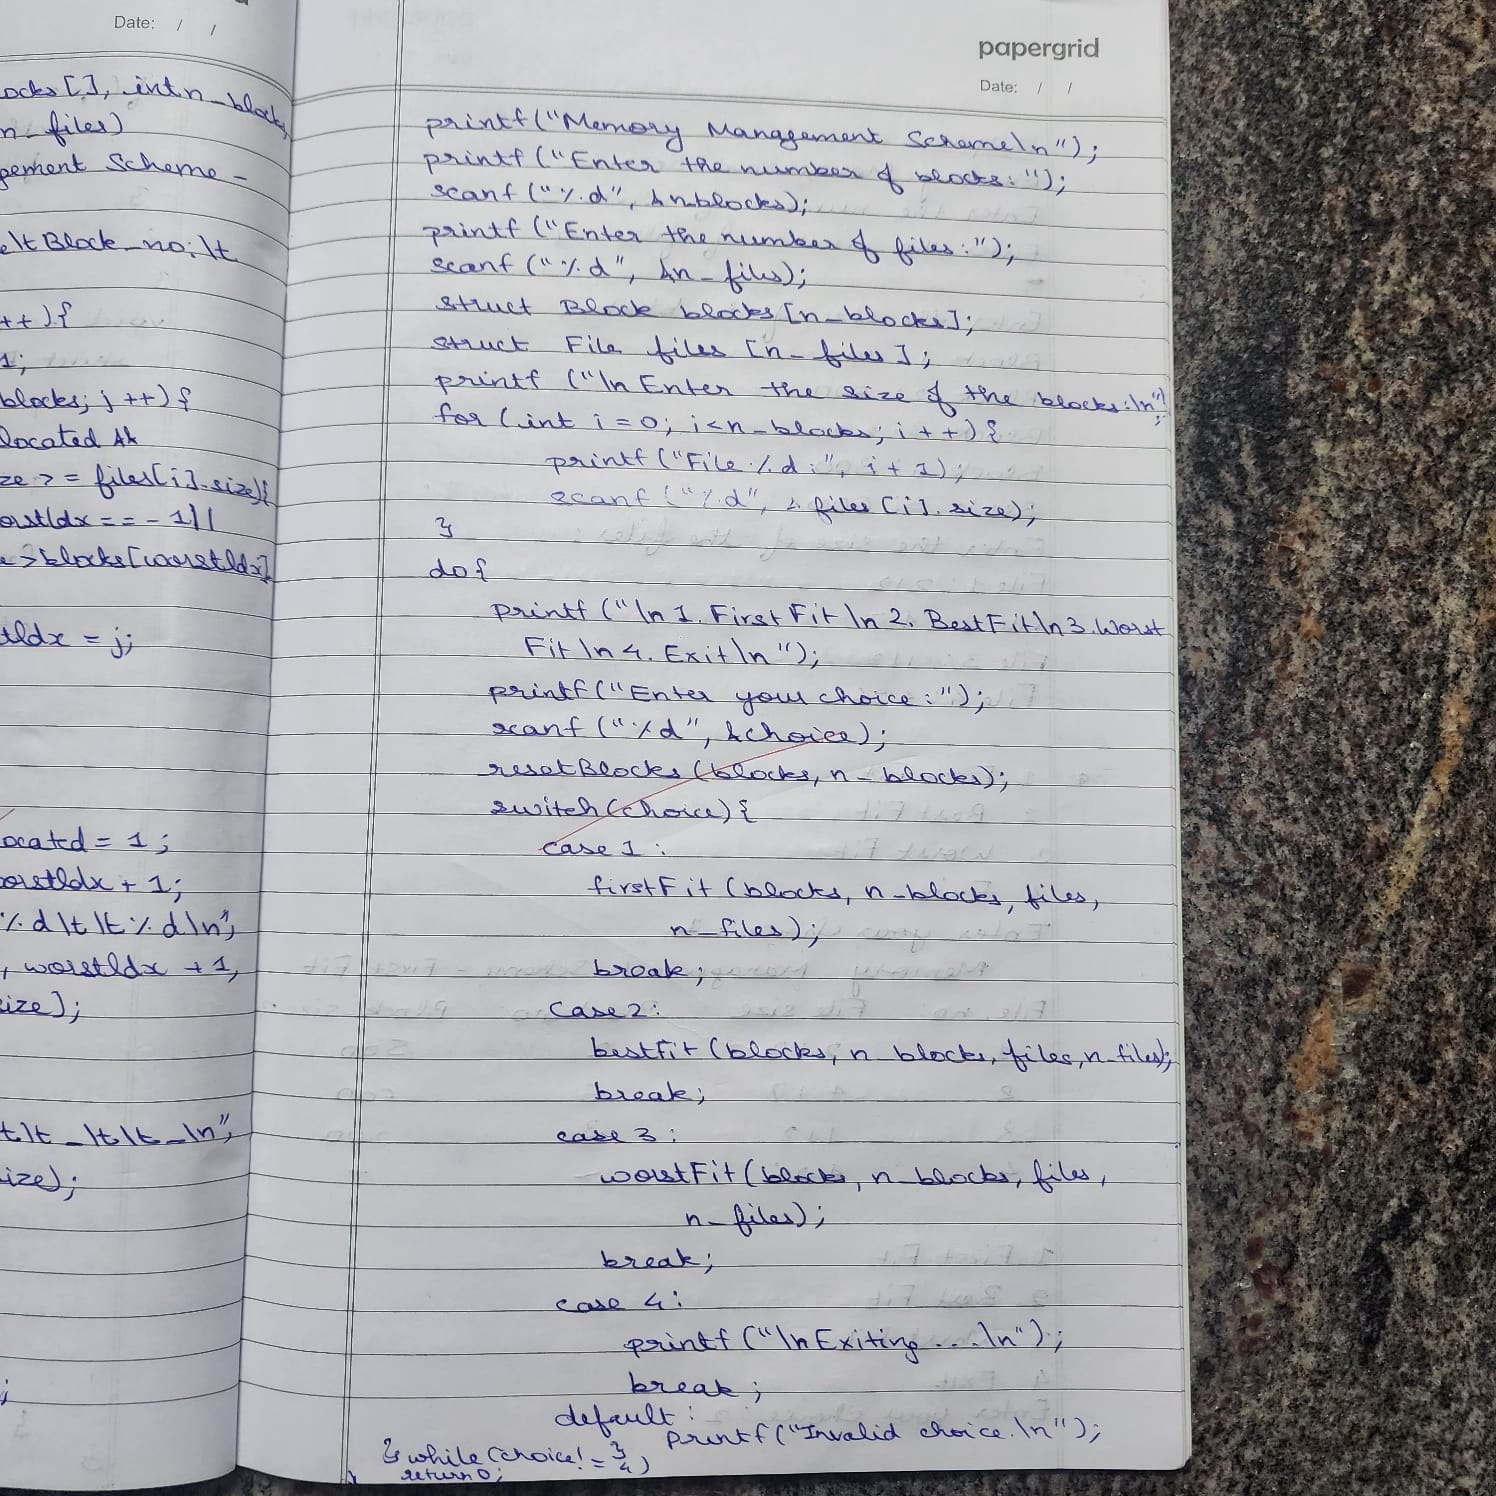 Date: / /
ocks[], int n_blocks,
n_files)
gement Scheme -
e\t Block_no:\t
++){
1;
blocks; j++){
located &&
ze >= files[i].size){
orstIdx == -1||
e > blocks[worstIdx]
tIdx = j;
ocated = 1;
orstIdx + 1;
%d\t\t%d\n",
, worstIdx + 1,
size);
t\t_\t\t_\n",
ize);
;
papergrid
Date: / /
printf("Memory Management Scheme\n");
printf("Enter the number of blocks:");
scanf("%d", &n_blocks);
printf("Enter the number of files:");
scanf("%d", &n_files);
struct Block blocks[n_blocks];
struct File files[n_files];
printf("\nEnter the size of the blocks:\n");
for(int i=0; i<n_blocks; i++){
printf("File %d:", i+1);
scanf("%d", &files[i].size);
}
do{
printf("\n1.First Fit\n2.Best Fit\n3.Worst
Fit\n4.Exit\n");
printf("Enter your choice:");
scanf("%d", &choice);
resetBlocks(blocks, n_blocks);
switch(choice){
case 1:
firstFit(blocks, n_blocks, files,
n_files);
break;
case 2:
bestFit(blocks, n_blocks, files, n_files);
break;
case 3:
worstFit(blocks, n_blocks, files,
n_files);
break;
case 4:
printf("\nExiting....\n");
break;
default:
printf("Invalid choice.\n");
}
}while(choice!=4)
return 0;